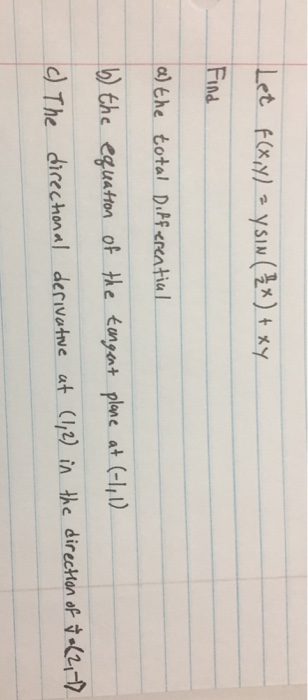 Let f(x,y) = y SIN (π/2 x) + xy
Find
a) the total Differential
b) the equation of the tangent plane at (-1,1)
c) The directional derivative at (1,2) in the direction of v⃗=(2,-1)